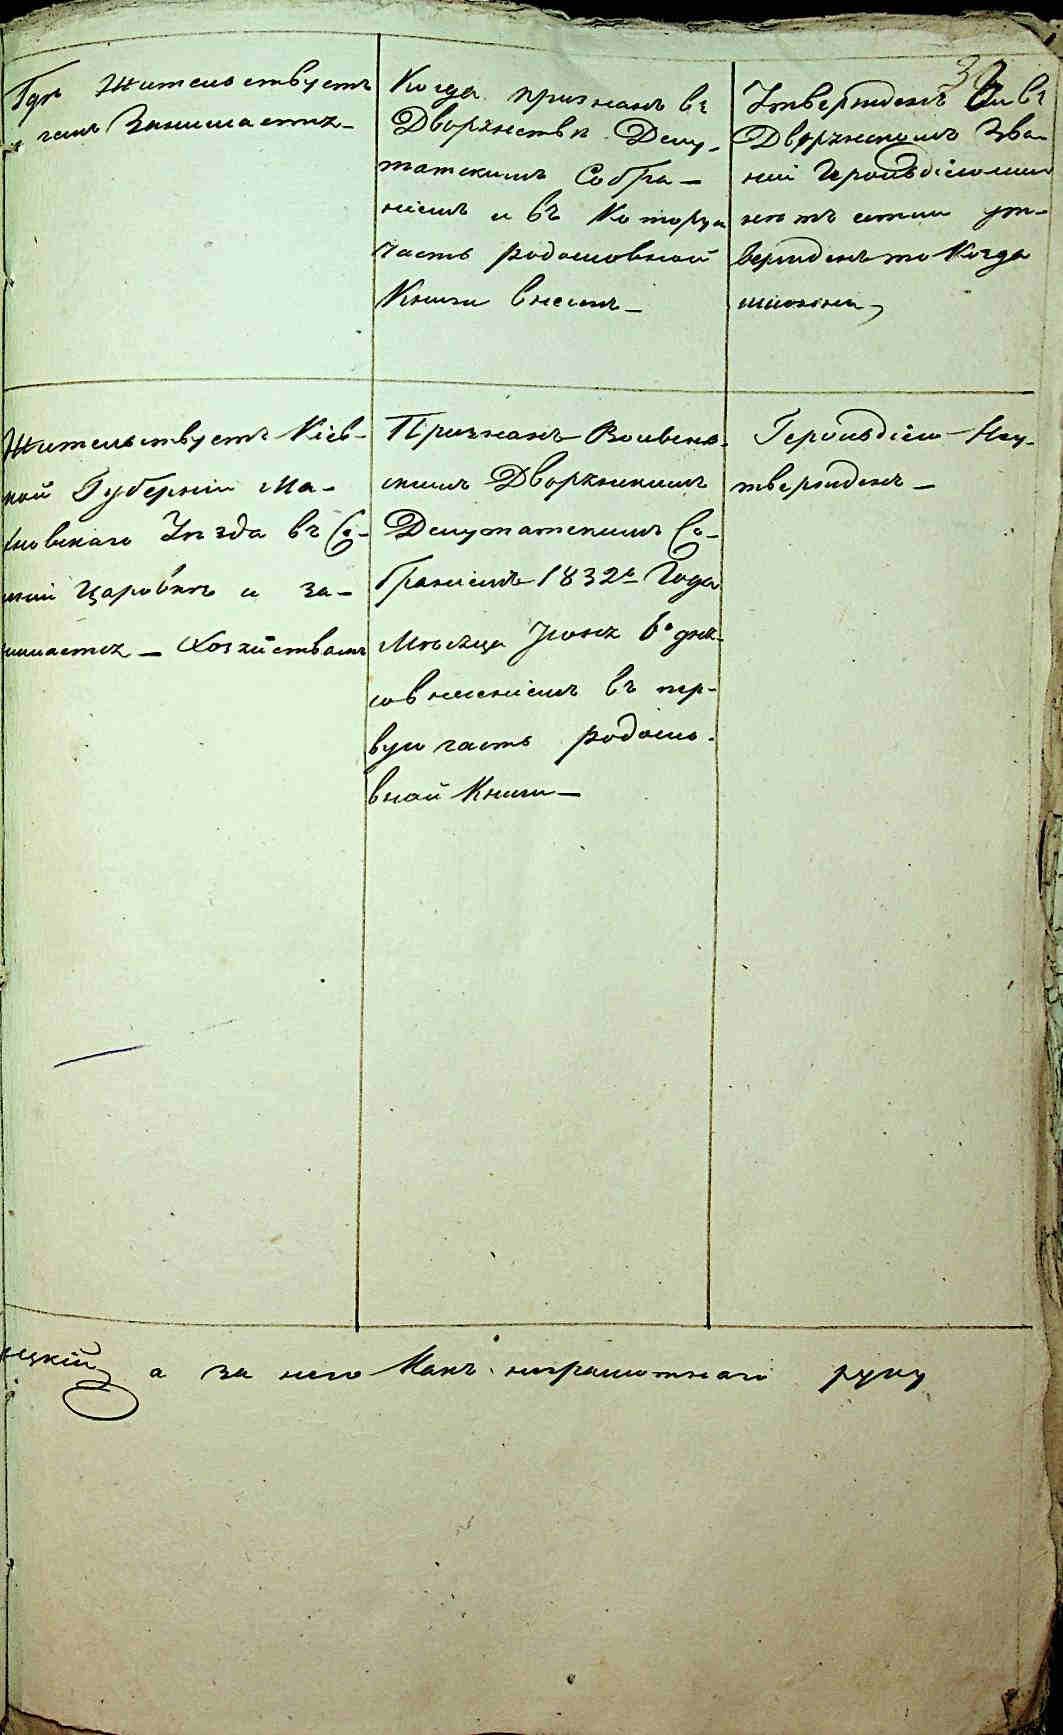 Гдѣ Жительствуетъ
и чемъ Занимается
Когда признанъ въ
Дворянствѣ Депу-
татскимъ Собра-
ніемъ и въ Которую
часть родословной
Книги внесенъ
Утвержденъ ли въ
Дворянскомъ Зва-
ніи Герольдіею или
нѣтъ если ут-
вержденъ то Когда
имянно
Жительствуетъ Кіев-
ской Губерніи Ма-
хновскаго Уѣзда въ Се-
леніи Царовкѣ и за-
нимается Хозяйствомъ
Признанъ Волынь-
скимъ Дворянскимъ
Депутатскимъ Со-
браніемъ 1832г Года
Мѣсяца Іюня 6о дня
со внесеніемъ въ пер-
вую часть родосло-
вной Книги
Герольдіею Неу-
твержденъ
ецкій а за него Какъ неграмотнаго руку